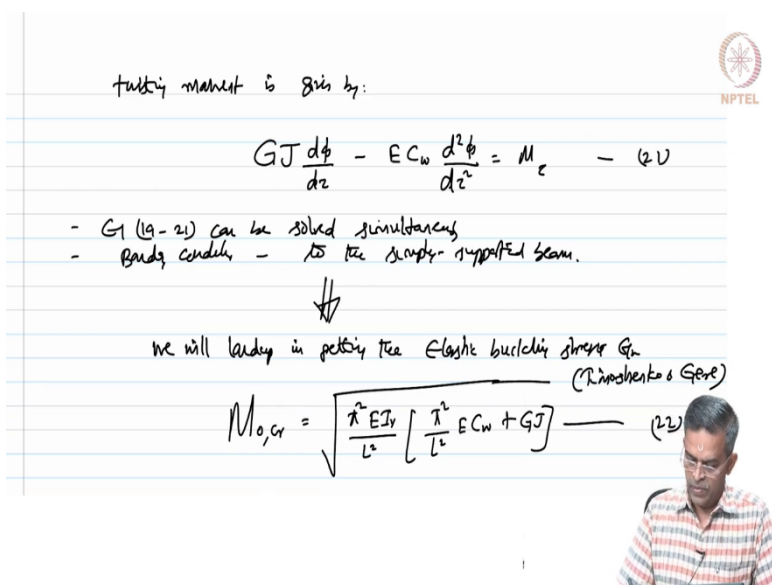 twisting moment is given by:
NPTEL
GJ dφ/dz - E Cw d²φ/dz² = Mz - (21)
- Eq (19-21) can be solved simultaneously
- Boundy conditn - to the simply-supported beam.
⇓
we will landup in getting the Elastic buckling strength Eqn
(Timoshenko & Gere)
Mo,cr = √ π² EIy / L² [ π² / L² E Cw + GJ ] — (22)